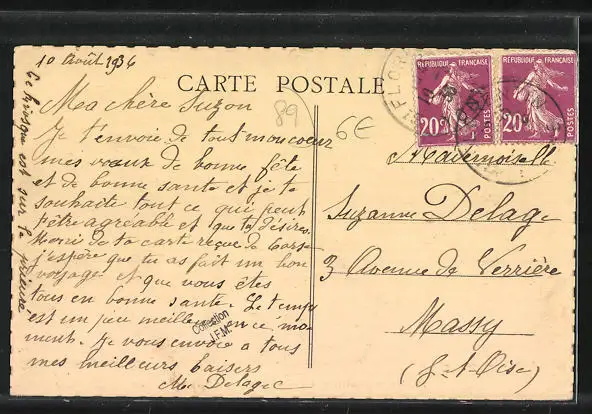 10 Août 1936
Le kiosque est sur la
CARTE POSTALE
89
6€
Ma chère Suzon
Je t'envoie de tout mon coeur
mes voeux de bonne fête
et de bonne sante et je te
souhaite tout ce qui peut
t'être agréable et que tu désires
Merci de ta carte reçue de Corse
j'espère que tu as fait un bon
voyage et que vous êtes
tous en bonne sante. Le temps
est un peu meilleur en ce mo
ment. Je vous envoie a tous
mes meilleurs baisers
M. Delage
Collection
J.F.M.
REPUBLIQUE FRANÇAISE
20c
POSTES
REPUBLIQUE FRANÇAISE
20c
POSTES
ST FLOR
Mademoiselle
Suzanne Delage
3 Avenue de Verrière
Massy
(S-et-Oise)